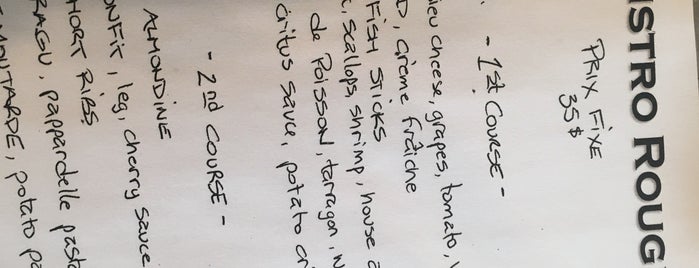 ISTRO ROUG
PRIX FIXE
35$
- 1st COURSE -
ieu cheese, grapes, tomato,
D, crème fraîche
FISH STICKS
scallops, shrimp, house
de POISSON, tarragon,
citus sauce, potato
- 2nd COURSE -
ALMONDINE
ONFIT, leg, cherry sauce
HORT RIBS
RAGU, pappardelle pasta
MOUTARDE, potato